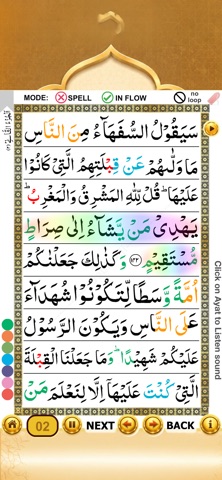 MODE: SPELL IN FLOW no loop
سَيَقُوْلُ السُّفَهَآءُ مِنَ النَّاسِ
مَا وَلّٰىهُمْ عَنْ قِبْلَتِهِمُ الَّتِيْ كَانُوْا
عَلَيْهَا ؕ قُلْ لِّلّٰهِ الْمَشْرِقُ وَالْمَغْرِبُ ؕ
يَهْدِيْ مَنْ يَّشَآءُ اِلٰى صِرَاطٍ
مُّسْتَقِيْمٍ ﴿۱۴۲﴾ وَكَذٰلِكَ جَعَلْنٰكُمْ
اُمَّةً وَّسَطًا لِّتَكُوْنُوْا شُهَدَآءَ
عَلَى النَّاسِ وَيَكُوْنَ الرَّسُوْلُ
عَلَيْكُمْ شَهِيْدًا ؕ وَمَا جَعَلْنَا الْقِبْلَةَ
الَّتِيْ كُنْتَ عَلَيْهَاۤ اِلَّا لِنَعْلَمَ مَنْ
Click on Ayat to Listen sound
02 NEXT BACK